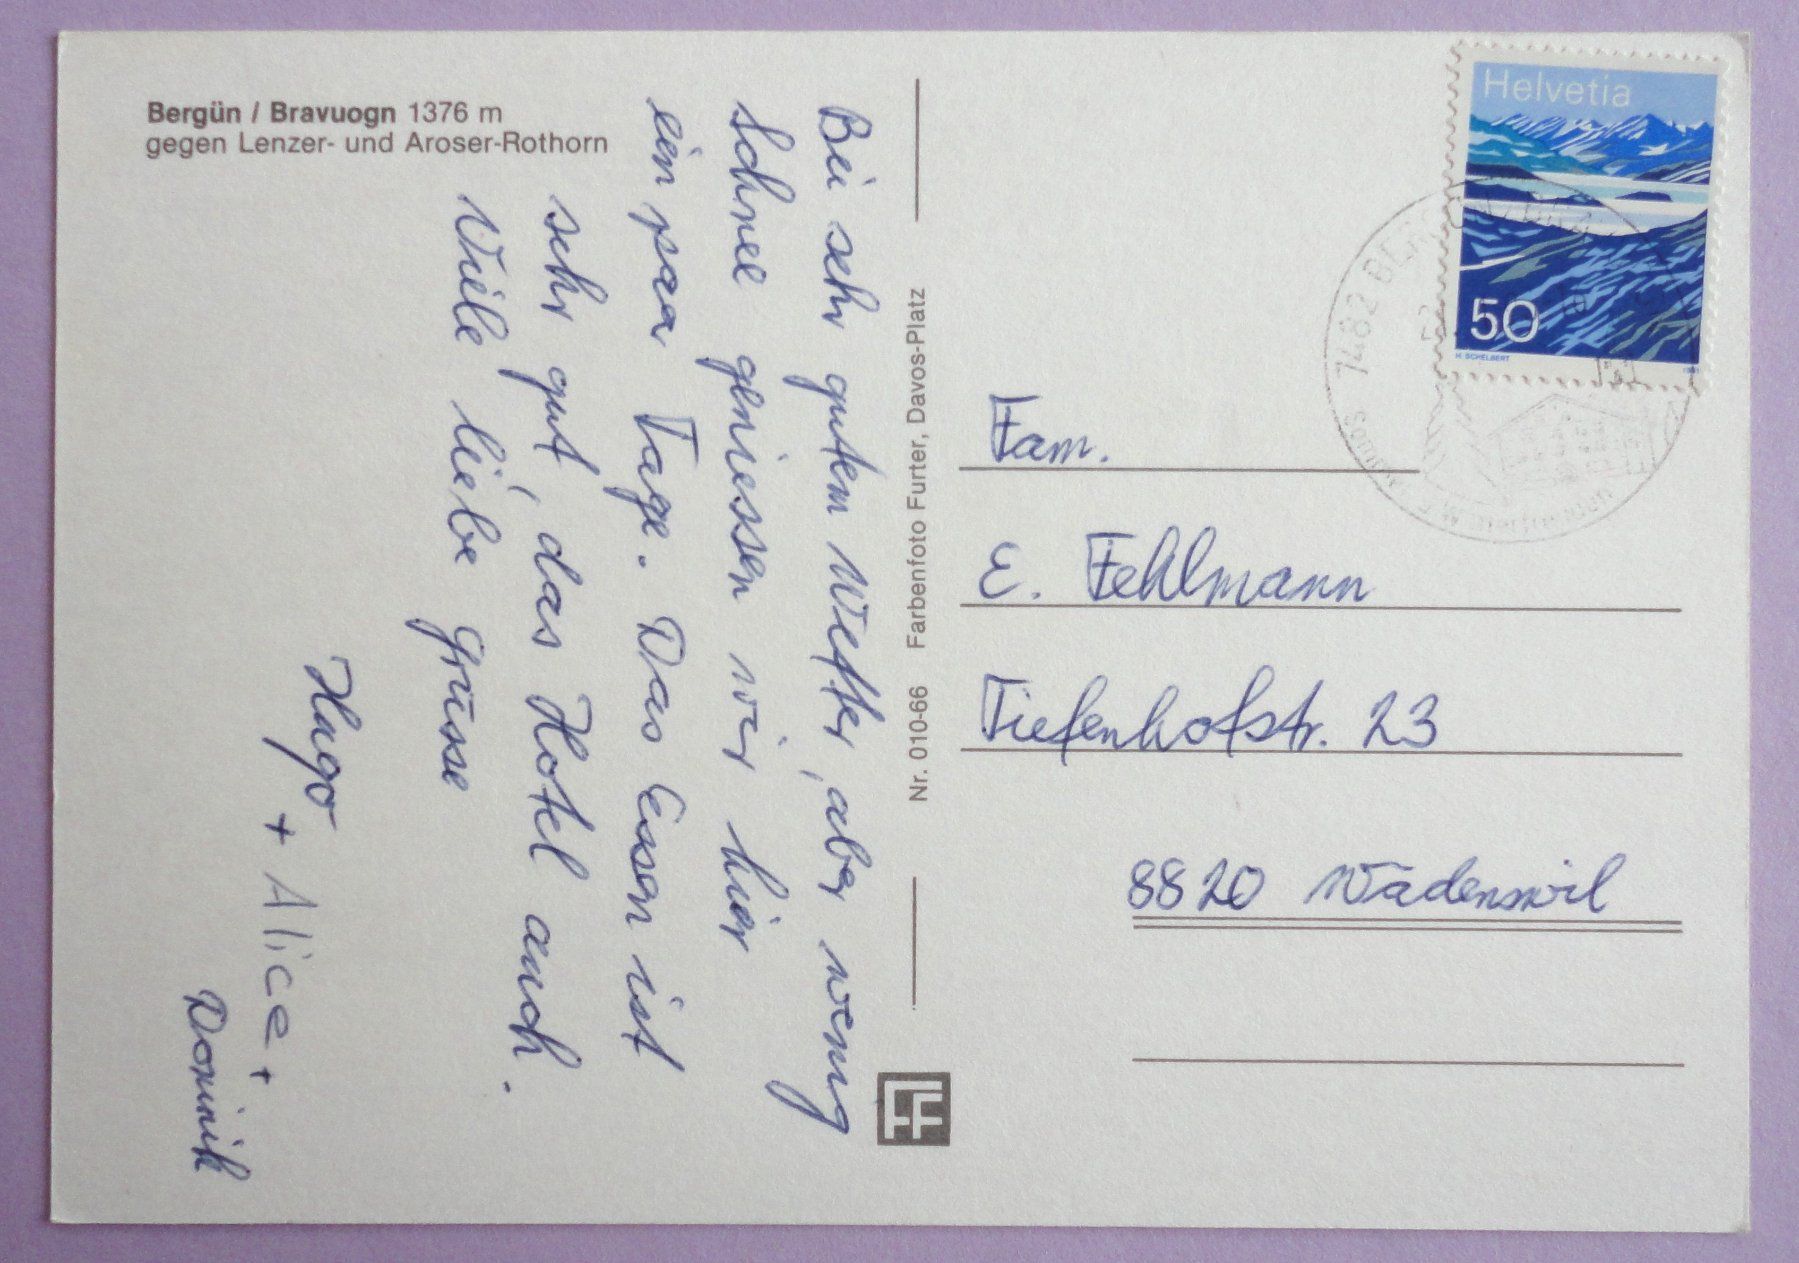 Bergün / Bravuogn 1376 m
gegen Lenzer- und Aroser-Rothorn
Bei sehr gutem Wetter, aber wenig
Schnee geniessen wir hier
ein paar Tage. Das Essen ist
sehr gut, das Hotel auch.
Viele liebe Grüsse
Hugo
+ Alice +
Dominik
Nr. 010-66 Farbenfoto Furter, Davos-Platz
FF
Helvetia
50
H. SCHELBERT
7482 BERGÜN
Sommer
Fam.
E. Fehlmann
Tiefenhofstr. 23
8820 Wädenswil